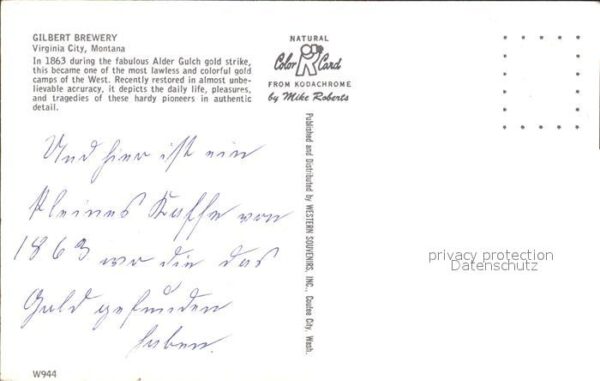 GILBERT BREWERY
Virginia City, Montana
In 1863 during the fabulous Alder Gulch gold strike,
this became one of the most lawless and colorful gold
camps of the West. Recently restored in almost unbe-
lievable acruracy, it depicts the daily life, pleasures,
and tragedies of these hardy pioneers in authentic
detail.
NATURAL
Color Card
FROM KODACHROME
by Mike Roberts
Published and Distributed by WESTERN SOUVENIRS, INC., Coulee City, Wash.
Und hier ist ein
kleines Kaffe von
1863 wo die das
Gold gefunden
haben.
privacy protection
Datenschutz
W944